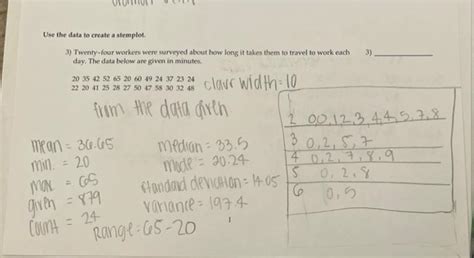 Use the data to create a stemplot.
3) Twenty-four workers were surveyed about how long it takes them to travel to work each 3)
day. The data below are given in minutes.
20 35 42 52 65 20 60 49 24 37 23 24
22 20 41 25 28 27 50 47 58 30 32 48
class width = 10
from the data given
mean = 36.65
min. = 20
max = 65
given = 879
count = 24
median = 33.5
mode = 20.24
standard deviation = 14.05
variance = 197.4
Range = 65-20
2 00,1 2,3,4,4,5,7,8
3 0,2,5,7
4 0,2,7,8,9
5 0,2,8
6 0,5